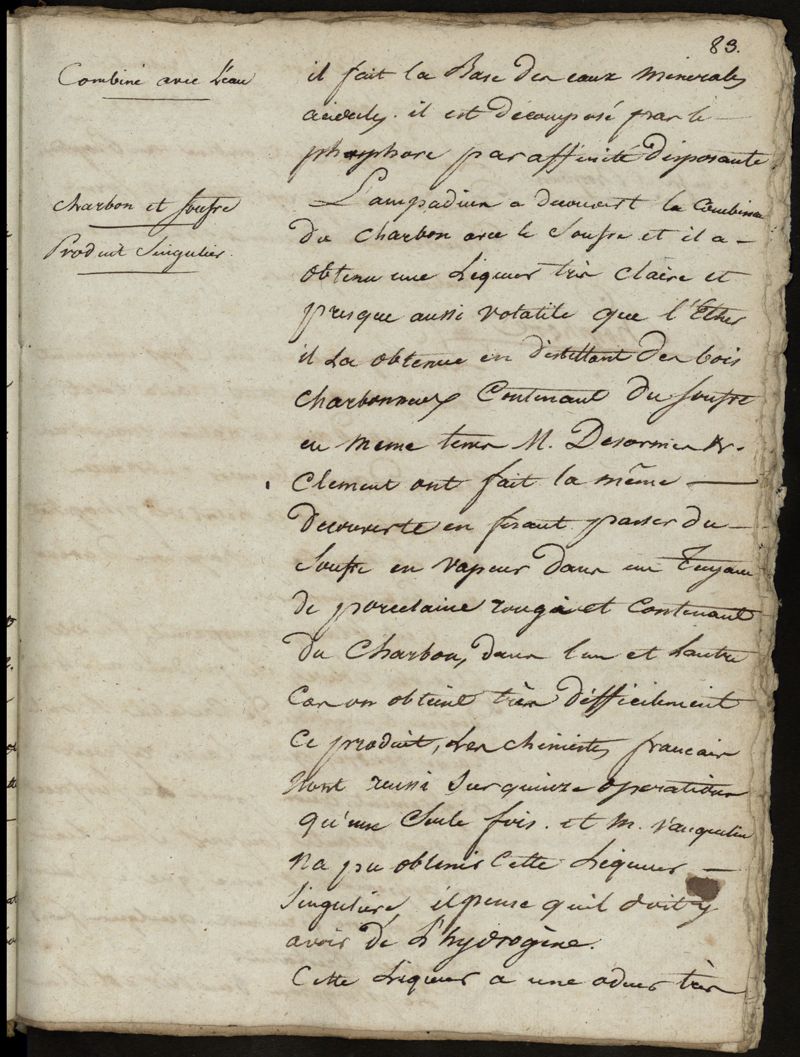 83.
Combiné avec L'eau
il fait la Base des eaux minerales
acidules. il est décomposé par le
phosphore par affinité disposante
charbon et soufre
Produit Singulier.
Lampadius a decouvert la Combin
du Charbon avec le Soufre et il a
obtenu une Liqueur très Claire et
presque aussi volatile que l'Ether
il La obtenue en distillant des bois
charbonneux Contenant du soufre
en meme tems M. Desormes &
Clement ont fait la même
decouverte en fesant passer du
Soufre en vapeur dans un Tuyau
de porcelaine rougi et Contenant
du Charbon, dans lun et Lautre
Cas on obtient très difficilement
Ce produit, Les chimistes francais
nont reussi sur quinze operations
qu'une Seule fois. et M. Vauquelin
na pu obtenir Cette Liqueur
Singulière, il pense quil doit y
avoir de L'hydrogène.
Cette Liqueur a une odeur très